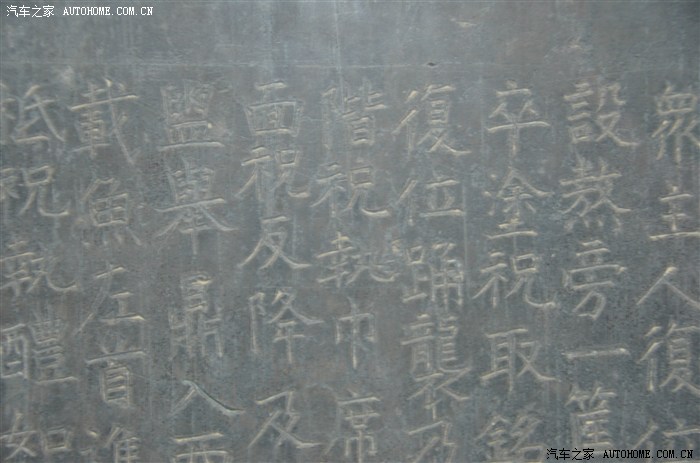 汽车之家 AUTOHOME.COM.CN
眾主人復位
設熬旁一筐
卒塗祝取銘
復位踊襲乃
階祝執巾席
面祝反降及
盥舉鼎入西
載魚左首進
祗祝執醴如
汽车之家 AUTOHOME.COM.CN